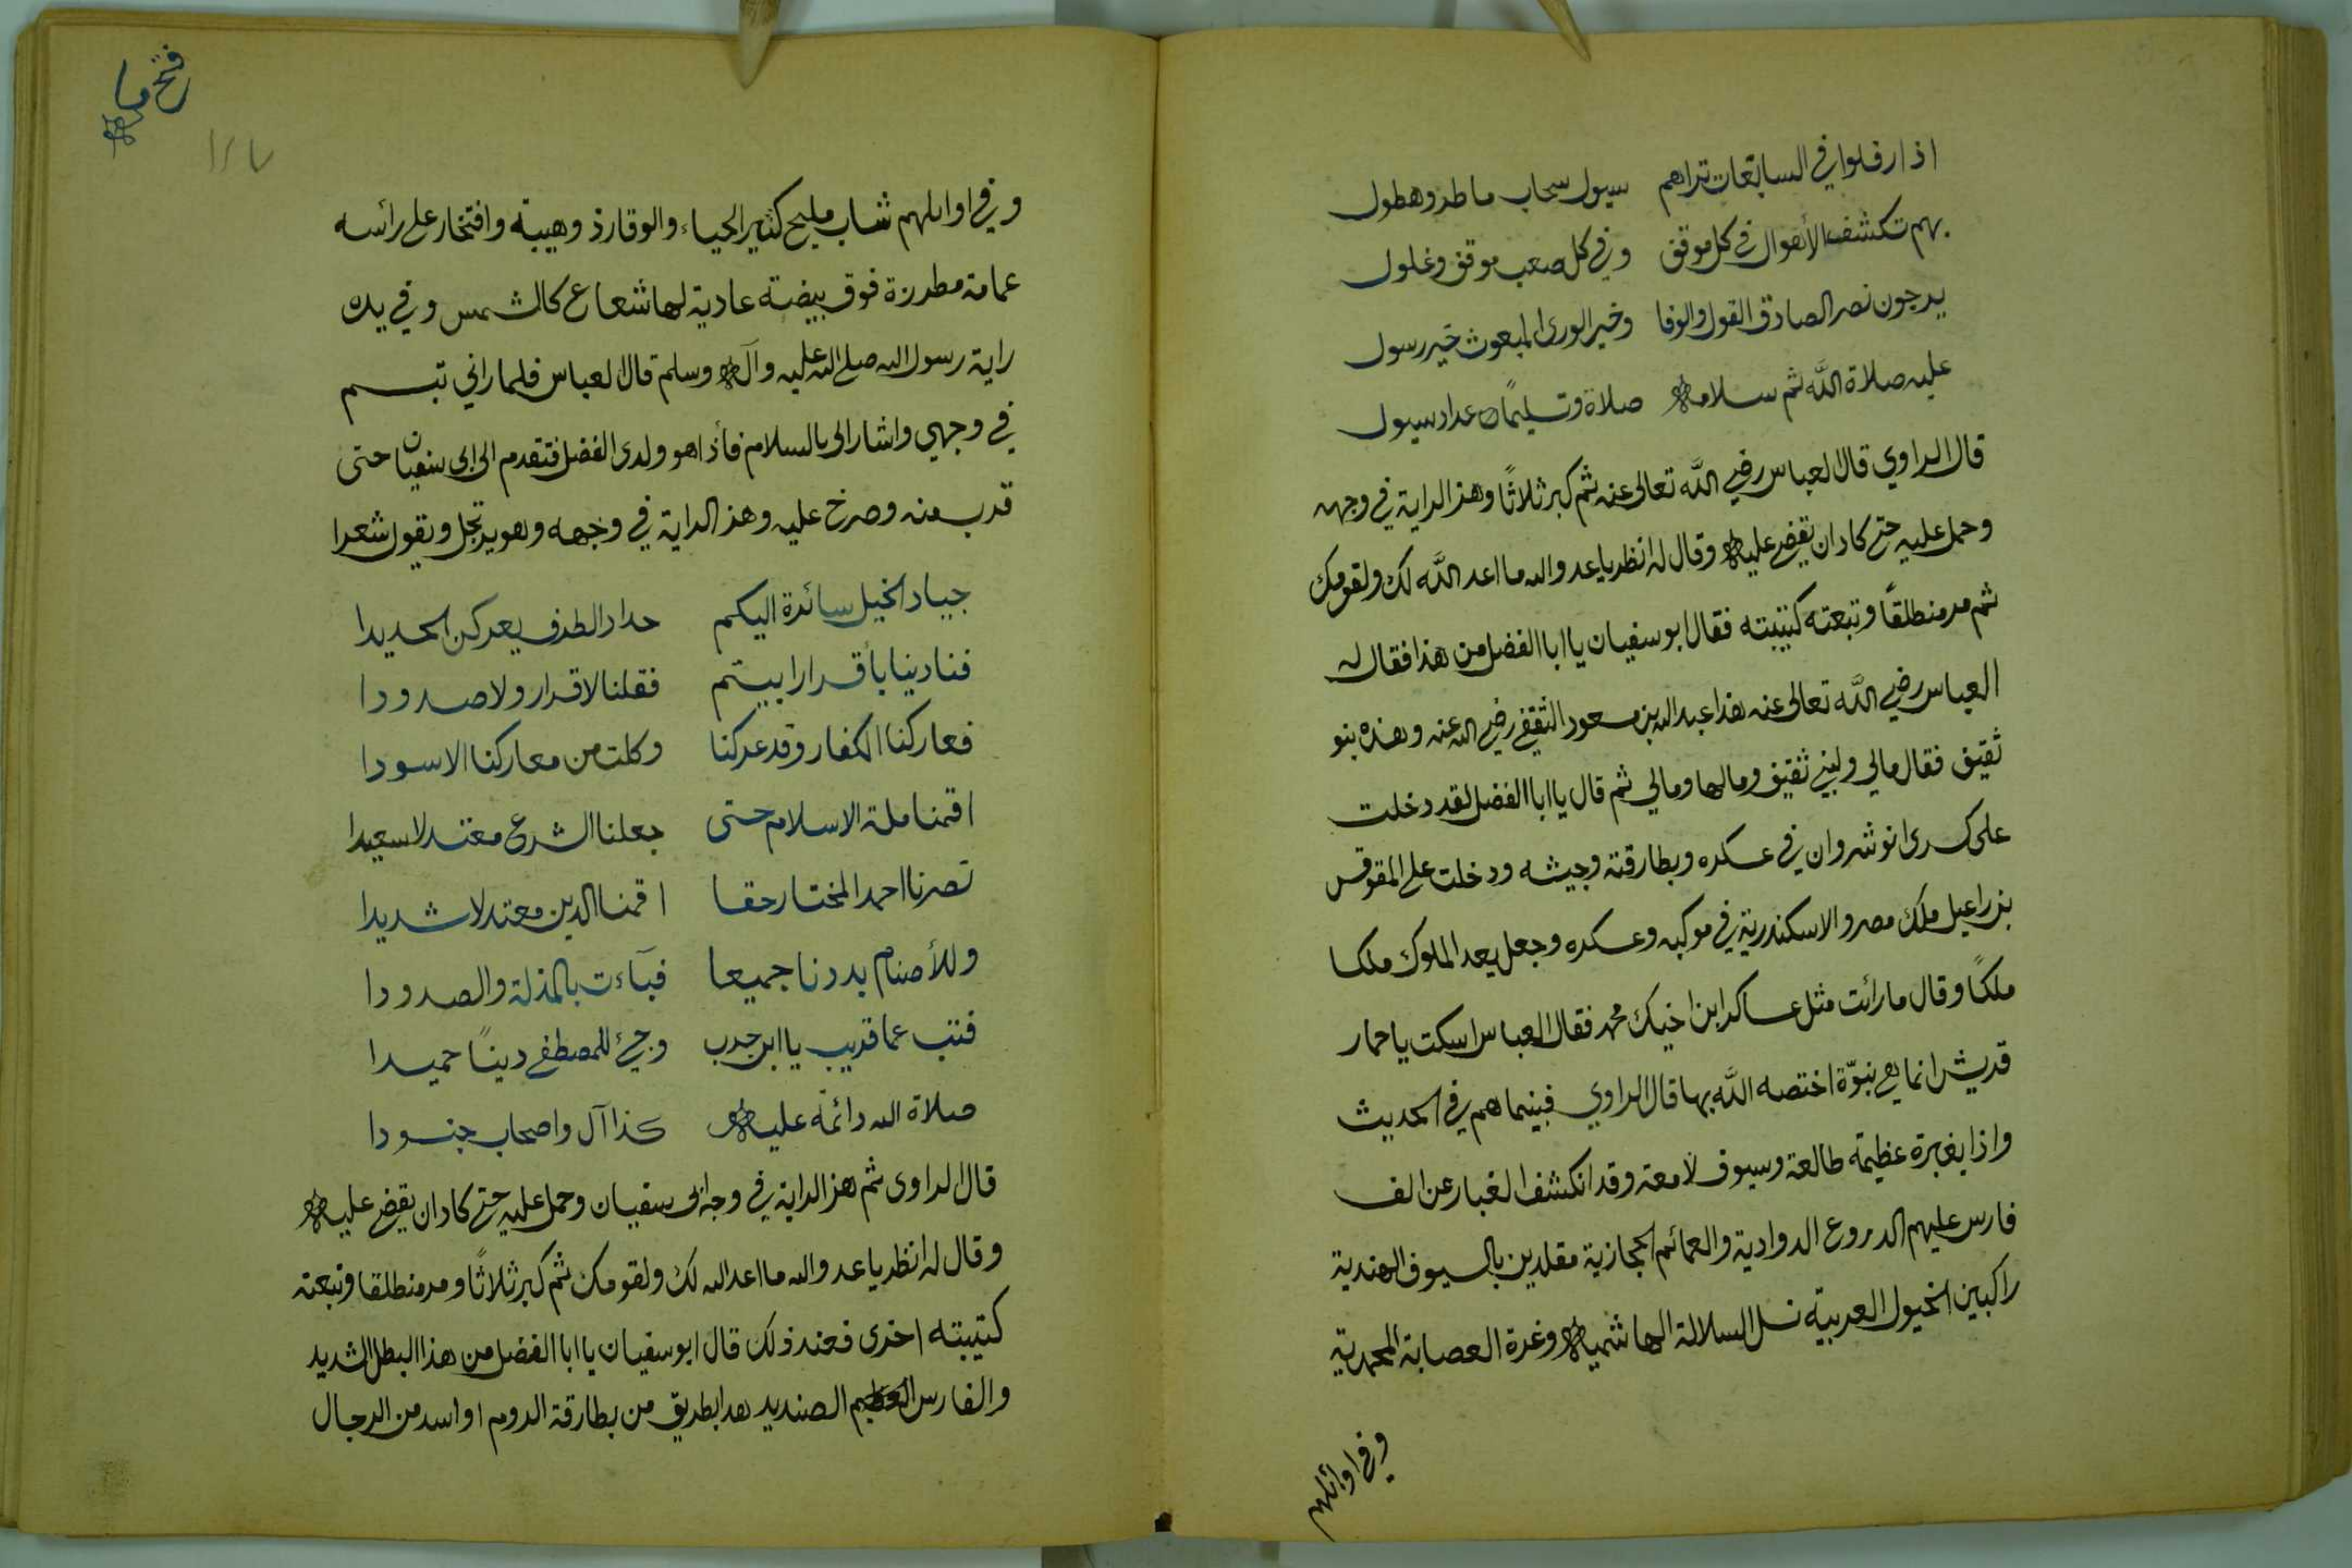 اذا رفلوا في السابغات تراهم سيول سحاب ماطر وهطول
بهم تكشف الأهوال في كل موقف وفي كل صعب موقف وغلول
يرجون نصر الصادق القول والوفا وخير الورى المبعوث خير رسول
عليه صلاة اللّه ثم سلامه صلاة وتسليمًا عداد سيول
قال الراوي قال العباس رضي اللّه تعالى عنه ثم كبر ثلاثًا وهز الراية في وجهه
وحمل عليه حتى كاد ان يقضي عليه وقال له انظر يا عدو الله ما اعد اللّه لك ولقومك
ثم مر منطلقًا وتبعته كتيبته فقال ابو سفيان يا ابا الفضل من هذا فقال له
العباس رضي اللّه تعالى عنه هذا عبد الله بن مسعود الثقفي رضي الله عنه وهذه بنو
ثقيف فقال مالي ولبني ثقيف ومالها ومالي ثم قال يا ابا الفضل لقد دخلت
على كسرى انوشروان في عسكره وبطارقته وجيشه ودخلت على المقوقس
بن راعيل ملك مصر والاسكندرية في موكبه وعسكره وجعل يعد الملوك ملكا
ملكًا وقال ما رائت مثل عساكر ابن اخيك محمد فقال العباس اسكت يا حمار
قريش انما هي نبوّة اختصه اللّه بها قال الراوي فبينما هم في الحديث
واذا بغبرة عظيمة طالعة وسيوف لامعة وقد انكشف الغبار عن الف
فارس عليهم الدروع الداودية والعمائم الحجازية مقلدين بالسيوف الهندية
راكبين الخيول العربية نسل السلالة الهاشميه وغرة العصابة المحمدية
وفي اوائلهم
فتح
١٢٧
وفي اوائلهم شاب مليح كثير الحياء والوقار ذو هيبة وافتخار على رائسه
عمامة مطرزة فوق بيضة عادية لها شعاع كالشمس وفي يده
راية رسول الله صلى الله عليه وآله وسلم قال العباس فلما راني تبسم
في وجهي واشار الى بالسلام فأذا هو ولدى الفضل فتقدم الى ابى سفيان حتى
قرب منه وصرخ عليه وهز الراية في وجهه وهو يرتجل ويقول شعرا
جياد الخيل سائرة اليكم حداد الطرف يعركن الحديدا
فنادينا بأقرار ابيتم فقلنا لا قرار ولا صدودا
فعاركنا الكفار وقد عركنا وكلت من معاركنا الاسودا
اقمنا ملة الاسلام حتى جعلنا الشرع معتدلا سعيدا
نصرنا احمد المختار حقا اقمنا الدين معتدلا شديدا
وللأصنام بددنا جميعا فبآءت بالمذلة والصدودا
فتب عما قريب يا ابن حرب وجئ للمصطفى دينًا حميدا
صلاة الله دائمة عليه كذا آل واصحاب جنودا
قال الراوى ثم هز الراية في وجه ابى سفيان وحمل عليه حتى كاد ان يقضي عليه
وقال له انظر يا عدو الله ما اعد الله لك ولقومك ثم كبر ثلاثًا ومر منطلقا وتبعته
كتيبته اخرى فعند ذلك قال ابو سفيان يا ابا الفضل من هذا البطل الشديد
والفارس الصنديد هذا بطريق من بطارقة الروم او اسد من الرجال